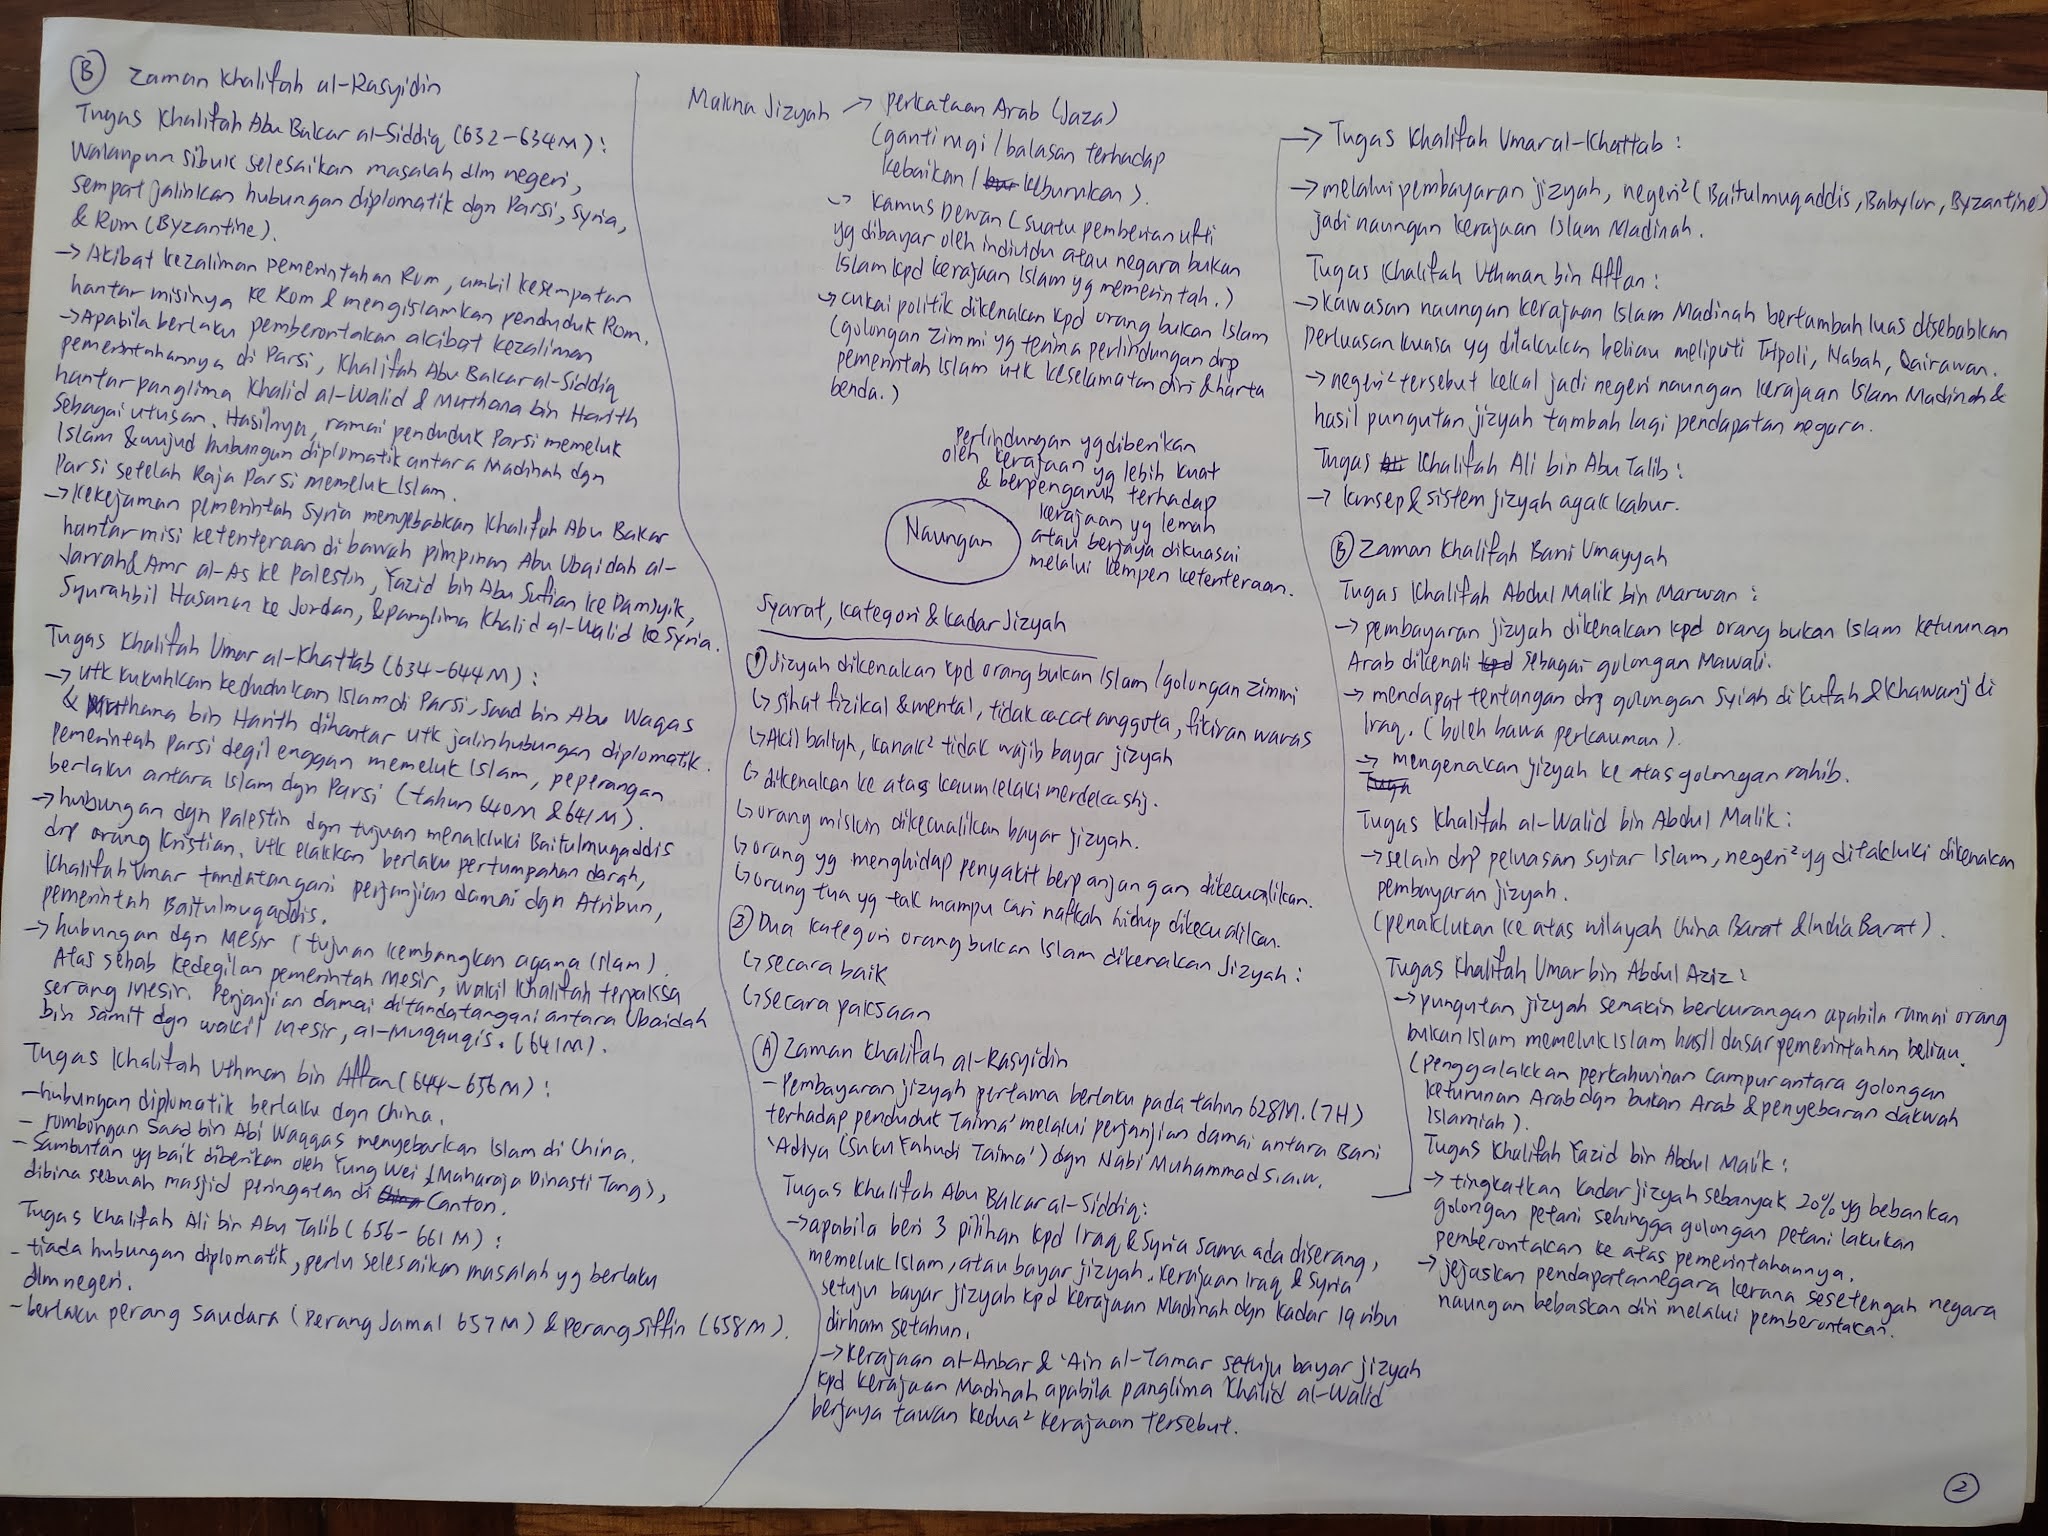 B Zaman Khalifah al-Rasyidin
Tugas Khalifah Abu Bakar al-Siddiq (632-634M):
Walaupun sibuk selesaikan masalah dlm negeri,
sempat jalinkan hubungan diplomatik dgn Parsi, Syria,
& Rom (Byzantine).
→ Akibat kezaliman pemerintahan Rom, ambil kesempatan
hantar misinya ke Rom & mengislamkan penduduk Rom.
→ Apabila berlaku pemberontakan akibat kezaliman
pemerintahannya di Parsi, Khalifah Abu Bakar al-Siddiq
hantar panglima Khalid al-Walid & Muthana bin Harith
sebagai utusan. Hasilnya, ramai penduduk Parsi memeluk
Islam & wujud hubungan diplomatik antara Madinah dgn
Parsi setelah Raja Parsi memeluk Islam.
→ Kekejaman pemerintah Syria menyebabkan Khalifah Abu Bakar
hantar misi ketenteraan di bawah pimpinan Abu Ubaidah al-
Jarrah & Amr al-As ke Palestin, Yazid bin Abu Sufian ke Damsyik,
Syurahbil Hasanan ke Jordan, & panglima Khalid al-Walid ke Syria.
Tugas Khalifah Umar al-Khattab (634-644M):
→ utk kukuhkan kedudukan Islam di Parsi, Saad bin Abu Waqas
& Muthana bin Harith dihantar utk jalin hubungan diplomatik.
Pemerintah Parsi degil enggan memeluk Islam, peperangan
berlaku antara Islam dgn Parsi (tahun 640M & 641M).
→ hubungan dgn Palestin dgn tujuan menakluki Baitulmuqaddis
drp orang Kristian. Utk elakkan berlaku pertumpahan darah,
Khalifah Umar tandatangani perjanjian damai dgn Atribun,
pemerintah Baitulmuqaddis.
→ hubungan dgn Mesir (tujuan kembangkan agama Islam).
Atas sebab kedegilan pemerintah Mesir, wakil Khalifah terpaksa
serang Mesir. Perjanjian damai ditandatangani antara Ubaidah
bin Samit dgn wakil Mesir, al-Muqauqis. (641M).
Tugas Khalifah Uthman bin Affan (644-656M):
- hubungan diplomatik berlaku dgn China.
- rombongan Saad bin Abi Waqqas menyebarkan Islam di China.
- Sambutan yg baik diberikan oleh Yung Wei (Maharaja Dinasti Tang),
dibina sebuah masjid peringatan di Canton.
Tugas Khalifah Ali bin Abu Talib (656-661M):
- tiada hubungan diplomatik, perlu selesaikan masalah yg berlaku
dlm negeri.
- berlaku perang saudara (Perang Jamal 657M) & Perang Siffin (658M).
Makna Jizyah → perkataan Arab (Jaza)
(ganti rugi / balasan terhadap
kebaikan / keburukan).
→ Kamus Dewan (suatu pemberian ufti
yg dibayar oleh individu atau negara bukan
Islam kpd kerajaan Islam yg memerintah.)
→ cukai politik dikenakan kpd orang bukan Islam
(golongan zimmi yg terima perlindungan drp
pemerintah Islam utk keselamatan diri & harta
benda.)
Perlindungan yg diberikan
oleh kerajaan yg lebih kuat
& berpengaruh terhadap
kerajaan yg lemah
atau berjaya dikuasai
melalui kempen ketenteraan.
Naungan
Syarat, kategori & kadar Jizyah
1 Jizyah dikenakan kpd orang bukan Islam / golongan zimmi
↳ sihat fizikal & mental, tidak cacat anggota, fikiran waras
↳ Akil baligh, kanak² tidak wajib bayar jizyah
↳ dikenakan ke atas kaum lelaki merdeka shj.
↳ orang miskin dikecualikan bayar jizyah.
↳ orang yg menghidap penyakit berpanjangan dikecualikan.
↳ orang tua yg tak mampu cari nafkah hidup dikecualikan.
2 Dua kategori orang bukan Islam dikenakan Jizyah:
↳ secara baik
↳ secara paksaan
A Zaman Khalifah al-Rasyidin
- Pembayaran jizyah pertama berlaku pada tahun 628M. (7H)
terhadap penduduk Taima' melalui perjanjian damai antara Bani
'Adiya (Suku Yahudi Taima') dgn Nabi Muhammad s.a.w.
Tugas Khalifah Abu Bakar al-Siddiq:
→ apabila beri 3 pilihan kpd Iraq & Syria sama ada diserang,
memeluk Islam, atau bayar jizyah. Kerajaan Iraq & Syria
setuju bayar jizyah kpd kerajaan Madinah dgn kadar 19 ribu
dirham setahun.
→ Kerajaan al-Anbar & 'Ain al-Tamar setuju bayar jizyah
kpd kerajaan Madinah apabila panglima Khalid al-Walid
berjaya tawan kedua² kerajaan tersebut.
→ Tugas Khalifah Umar al-Khattab:
→ melalui pembayaran jizyah, negeri² (Baitulmuqaddis, Babylon, Byzantine)
jadi naungan kerajaan Islam Madinah.
Tugas Khalifah Uthman bin Affan:
→ Kawasan naungan kerajaan Islam Madinah bertambah luas disebabkan
perluasan kuasa yg dilakukan beliau meliputi Tripoli, Nabah, Qairawan.
→ negeri² tersebut kekal jadi negeri naungan kerajaan Islam Madinah &
hasil pungutan jizyah tambah lagi pendapatan negara.
Tugas Khalifah Ali bin Abu Talib:
→ konsep & sistem jizyah agak kabur.
B Zaman Khalifah Bani Umayyah
Tugas Khalifah Abdul Malik bin Marwan:
→ pembayaran jizyah dikenakan kpd orang bukan Islam keturunan
Arab dikenali sebagai golongan Mawali.
→ mendapat tentangan drp golongan Syiah di Kufah & Khawarij di
Iraq. (boleh bawa perkauman).
→ mengenakan jizyah ke atas golongan rahib.
Tugas Khalifah al-Walid bin Abdul Malik:
→ selain drp peluasan syiar Islam, negeri² yg ditakluki dikenakan
pembayaran jizyah.
(penaklukan ke atas wilayah China Barat & India Barat).
Tugas Khalifah Umar bin Abdul Aziz:
→ pungutan jizyah semakin berkurangan apabila ramai orang
bukan Islam memeluk Islam hasil dasar pemerintahan beliau.
(Penggalakkan perkahwinan campur antara golongan
keturunan Arab dgn bukan Arab & penyebaran dakwah
Islamiah).
Tugas Khalifah Yazid bin Abdul Malik:
→ tingkatkan kadar jizyah sebanyak 20% yg bebankan
golongan petani sehingga golongan petani lakukan
pemberontakan ke atas pemerintahannya.
→ jejaskan pendapatan negara kerana sesetengah negara
naungan bebaskan diri melalui pemberontakan.
2